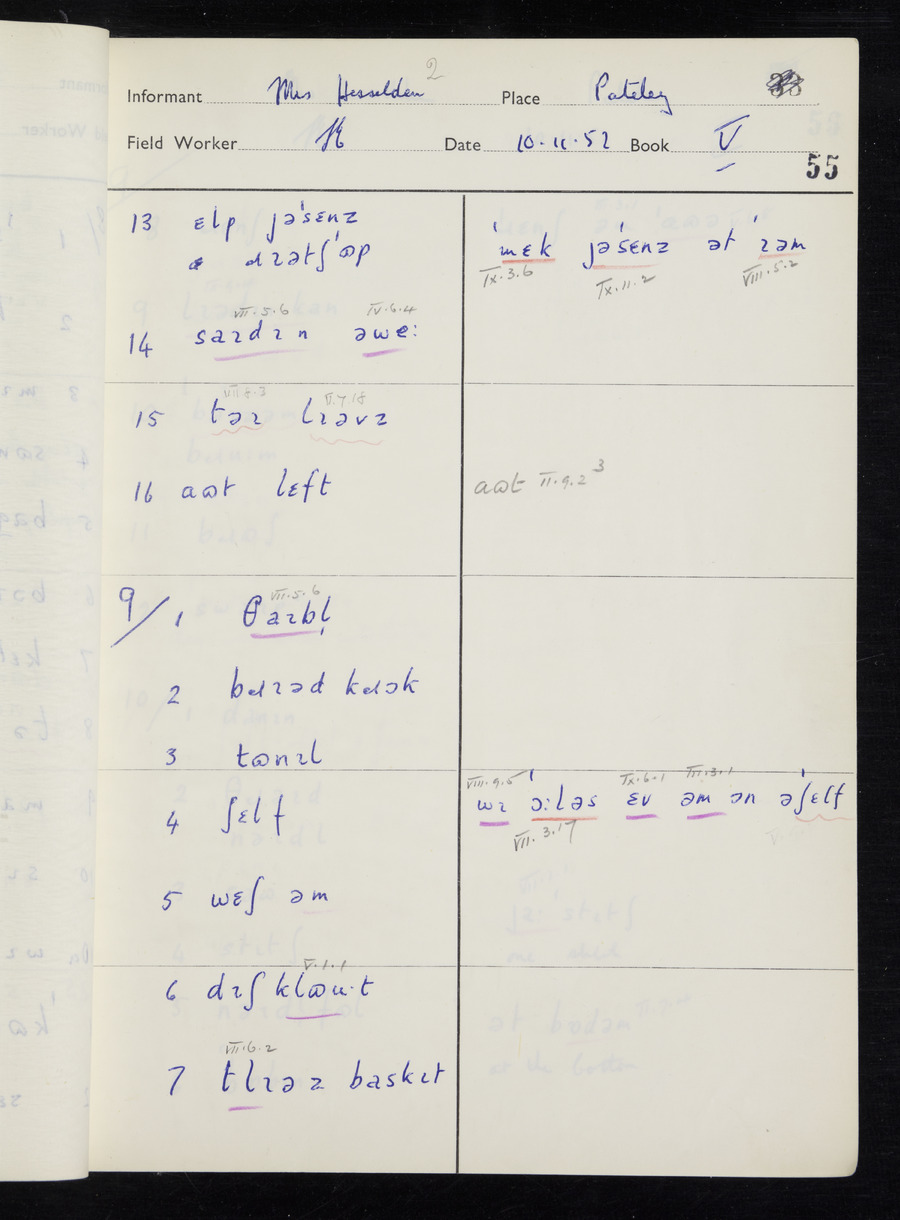 2
Informant Mrs Hesselden Place Pateley
Field Worker Date 10.11.52 Book V
55
13 ɛlp jəˈsɛnz
ˈmɛk jəˈsɛnz ət ˈɪəm
IX.3.6 IX.11.2 VIII.5.2
VII.5.6 IV.6.4
14 saɪdɪn əwe:
VII.8.3 V.7.18
15 təɪ lɪəvz
16 aɷt lɛft
aɷt II.9.2 3
VII.5.6
9/1 θaɪbl̩
2 kɔk
3 tɷnɪl
VIII.9.5 IX.6.1 III.3.1
4 ʃɛlf
wɪ ˈɔ:ləs ɛv əm ɔn əˈʃɛlf
VII.3.17
5 wɛʃ əm
V.1.1
6 dɪʃklɷu·t
VII.6.2
7 tlɪəz baskɪt